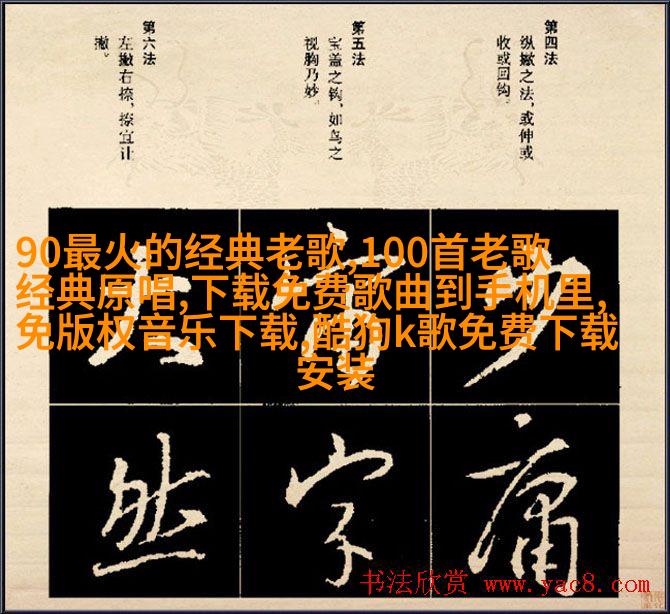 第四法
纵撇之法,或伸或
收或回钩。
第五法
宝盖之钩,如鸟之
视胸乃妙。
第六法
左撇右捺,捺宜让
撇。
90最火的经典老歌,100首老歌
经典原唱,下载免费歌曲到手机里,
免版权音乐下载,酷狗k歌免费下载
安装
少
庸
字
然
书法欣赏 www.yac8.com